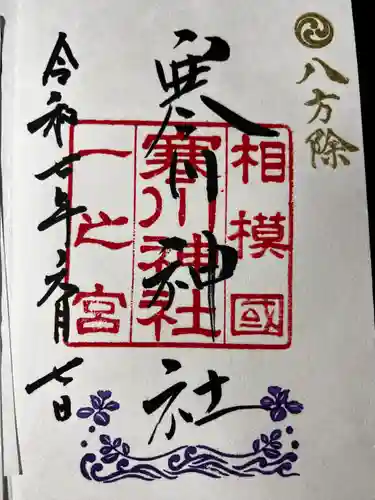 八方除
寒川神社
相模國
寒川神社
一之宮
令和七年六月七日